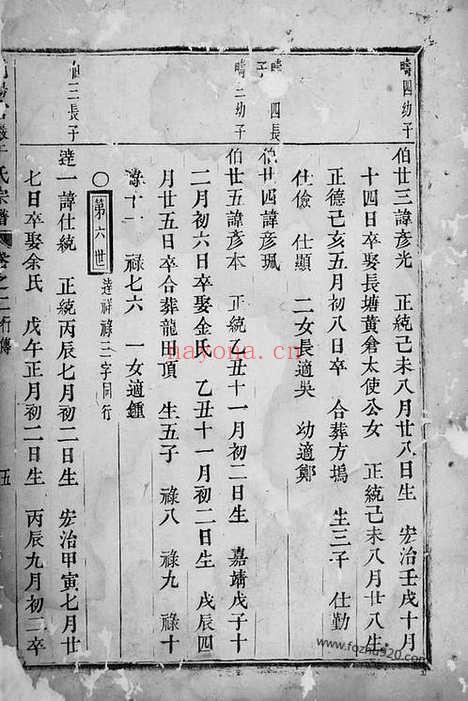 時四幼子
伯廿三諱彥光 正統己未八月廿八日生 宏治壬戌十月
十四日卒娶長塘黃倉太使公女 正統己未八月廿八生
正德己亥五月初八日卒 合葬方塢 生三子 仕勤
仕儉 仕顯 二女長適吳 幼適鄭
時四長子
伯廿四諱彥珮
時二幼子
伯廿五諱彥本 正統乙丑十一月初二日生 嘉靖戊子十
二月初六日卒娶金氏 乙丑十一月初二日生 戊辰四
月廿五日卒合葬龍田頂 生五子 祿八 祿九 祿十
祿十一 祿七六 一女適鍾
○ 第六世 達祥祿三字同行
三長子
達一諱仕統 正統丙辰七月初二日生 宏治甲寅七月廿
七日卒娶余氏 戊午正月初二日生 丙辰九月初二卒
氏宗譜 卷之二行傳 五
nayona.cn
www.fozhu920.com